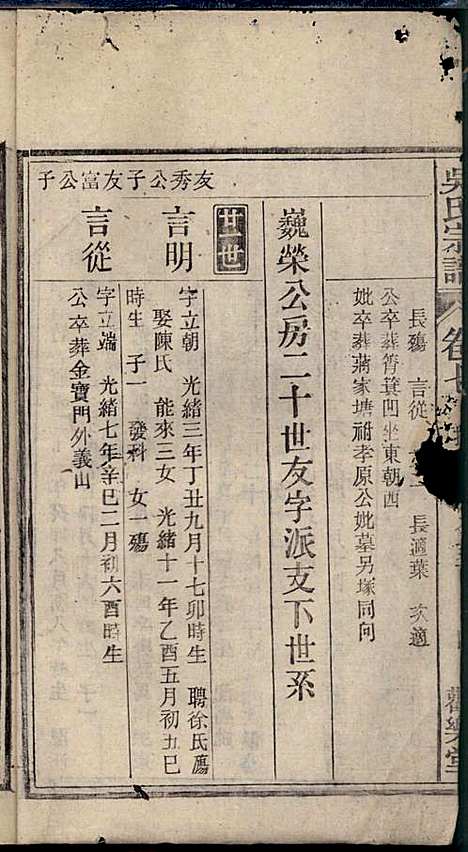 吳氏宗譜 卷七
觀樂堂
長殤 言從 長適葉 次適
公卒葬箕凹坐東朝西
妣卒葬蔣家塘祔孝原公妣墓另塚同向
巍榮公房二十世友字派支下世系
廿世
友秀公子
言明
字立朝 光緒三年丁丑九月十七卯時生 聘徐氏殤
娶陳氏 能來三女 光緒十一年乙酉五月初五巳
時生 子一 發科 女一殤
友富公子
言從
字立端 光緒七年辛巳二月初六酉時生
公卒葬金寶門外義山